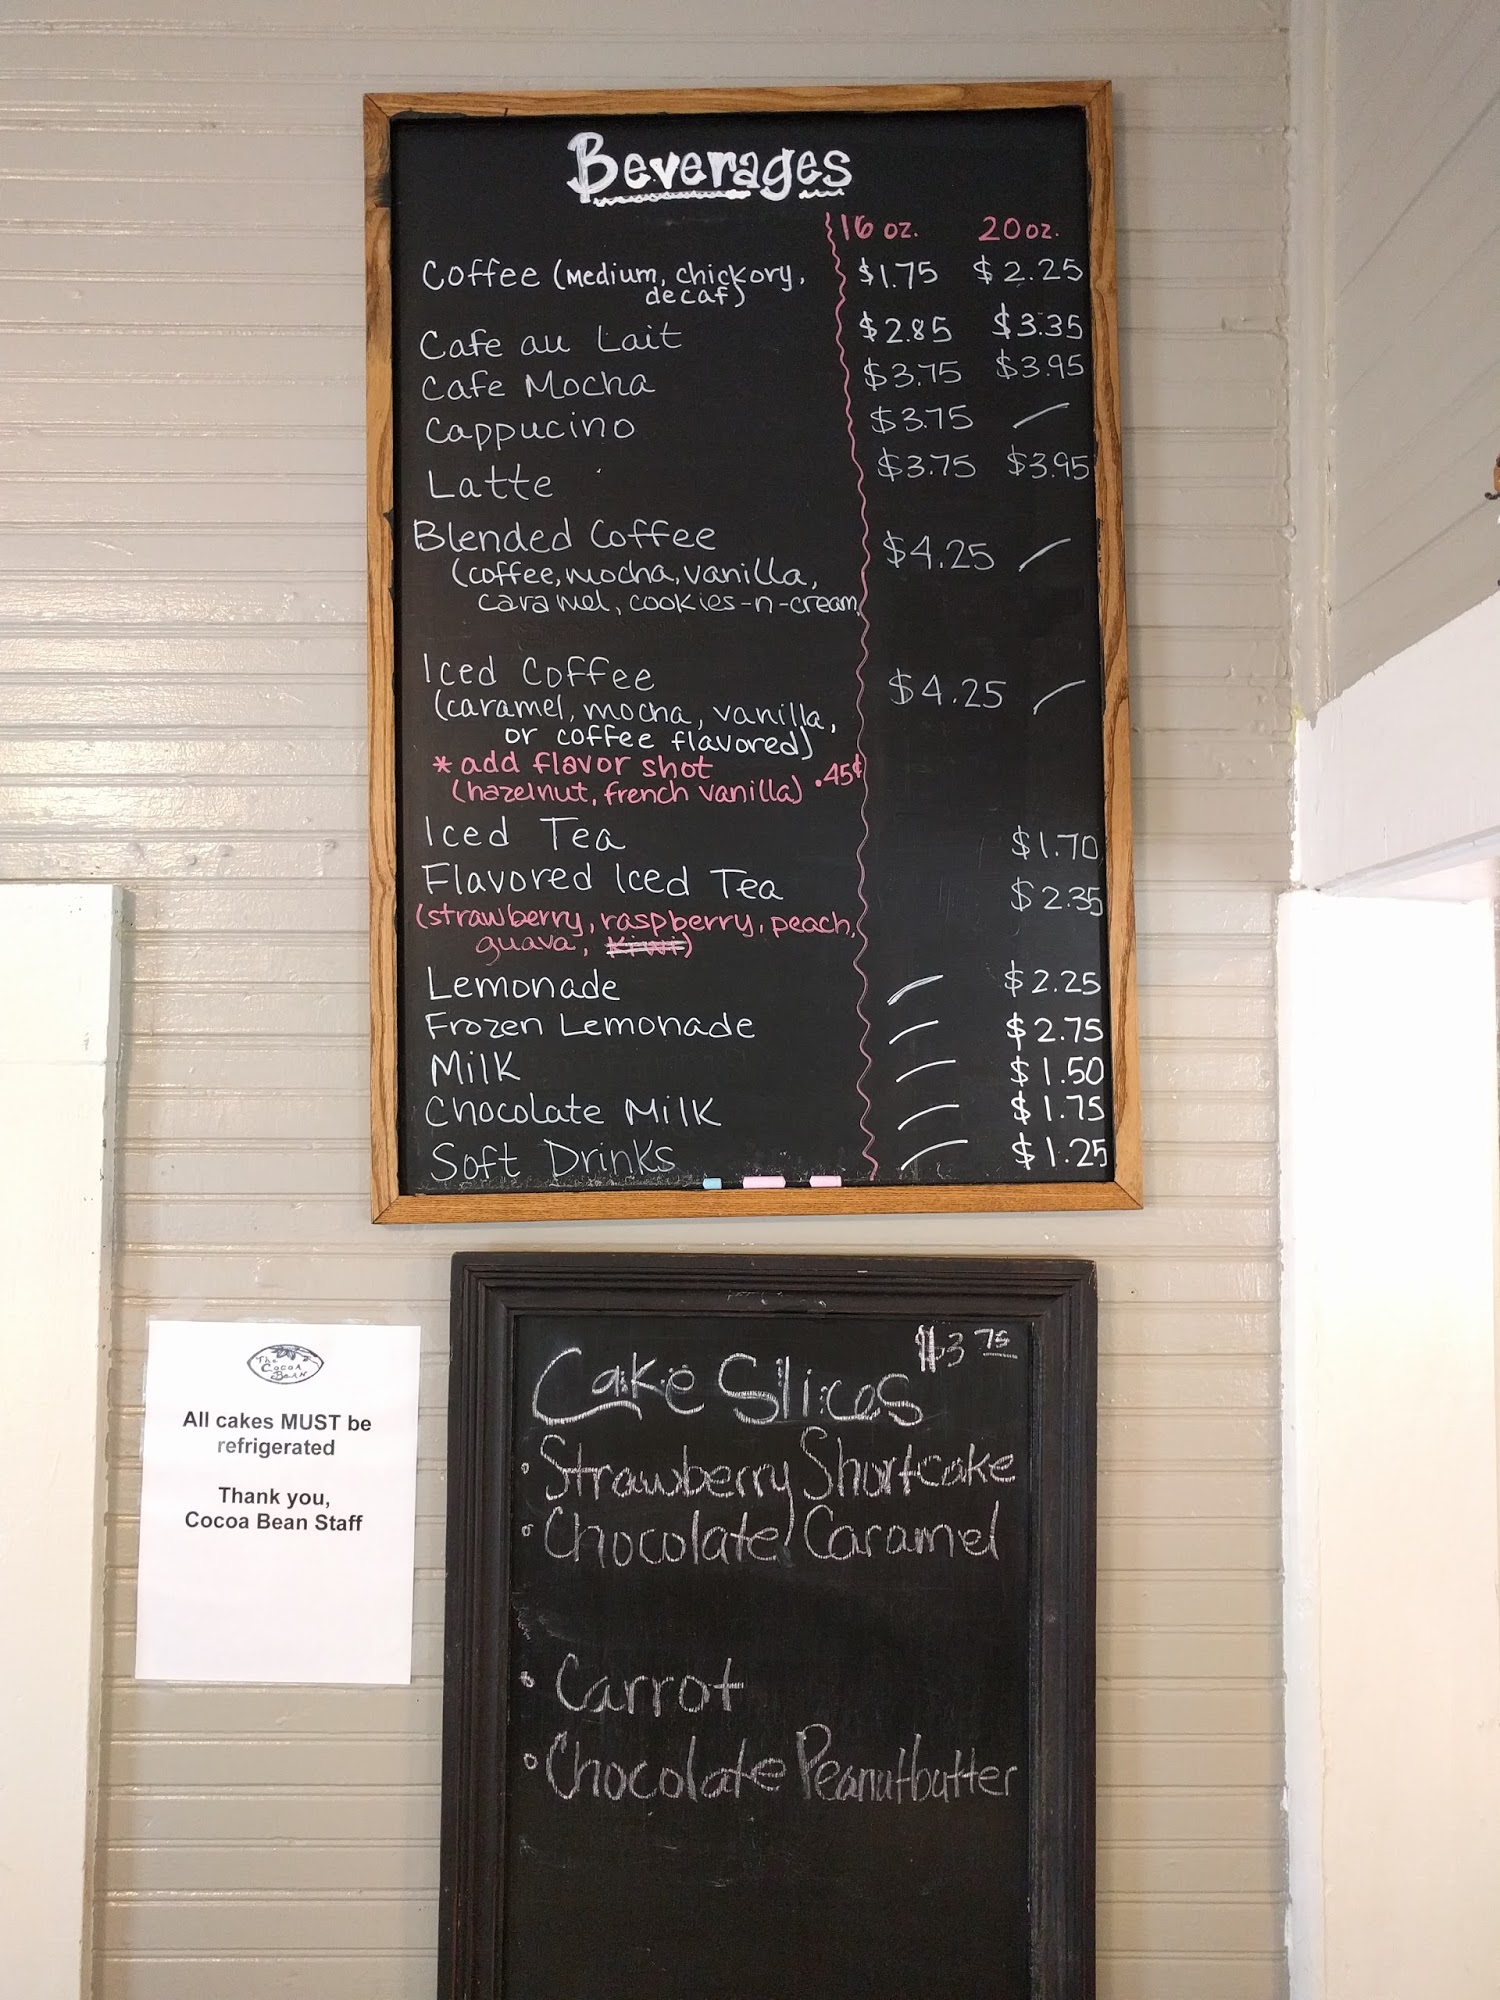 Beverages
16 oz. 20 oz.
Coffee (Medium, chickory, $1.75 $2.25
decaf)
Cafe au Lait $2.85 $3.35
Cafe Mocha $3.75 $3.95
Cappucino $3.75
Latte $3.75 $3.95
Blended Coffee $4.25
(coffee, mocha, vanilla,
caramel, cookies-n-cream)
Iced Coffee $4.25
(caramel, mocha, vanilla,
or coffee flavored)
* add flavor shot .45¢
(hazelnut, french vanilla)
Iced Tea $1.70
Flavored Iced Tea $2.35
(strawberry, raspberry, peach,
guava, Kiwi)
Lemonade $2.25
Frozen Lemonade $2.75
Milk $1.50
Chocolate Milk $1.75
Soft Drinks $1.25
The
Cocoa
Bean
All cakes MUST be
refrigerated
Thank you,
Cocoa Bean Staff
$3 75
Cake Slices
• Strawberry Shortcake
• Chocolate Caramel
• Carrot
• Chocolate Peanutbutter